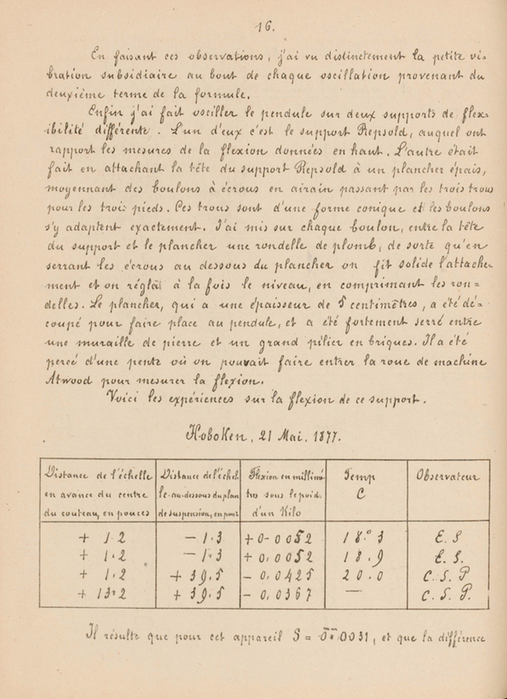 16.
En faisant ces observations, j'ai vu distinctement la petite vi-
bration subsidiaire au bout de chaque oscillation provenant du
deuxième terme de la formule.
Enfin j'ai fait osciller le pendule sur deux supports de flex-
ibilité différente. L'un d'eux c'est le support Repsold, auquel ont
rapport les mesures de la flexion données en haut. L'autre était
fait en attachant la tête du support Repsold à un plancher épais,
moyennant des boulons à écrous en airain passant par les trois trous
pour les trois pieds. Ces trous sont d'une forme conique et les boulons
s'y adaptent exactement. J'ai mis sur chaque boulon, entre la tête
du support et le plancher une rondelle de plomb, de sorte qu'en
serrant les écrous au dessous du plancher on fit solide l'attache-
ment et on régla à la fois le niveau, en comprimant les ron-
delles. Le plancher, qui a une épaisseur de 5 centimètres, a été dé-
coupé pour faire place au pendule, et a été fortement serré entre
une muraille de pierre et un grand pilier en briques. Il a été
percé d'une pente où on pouvait faire entrer la roue de machine
Atwood pour mesurer la flexion.
Voici les expériences sur la flexion de ce support.
Hoboken, 21 Mai. 1877.
Distance de l'échelle en avance du centre du couteau, en pouces | Distance de l'échelle au-dessous du plan de suspension, en | Flexion en millimètres sous le poids d'un Kilo | Temp C | Observateur
+ 1.2 | - 1.3 | + 0.0052 | 18.°3 | E. S.
+ 1.2 | - 1.3 | + 0.0052 | 18.9 | E. S.
+ 1.2 | + 39.5 | - 0.0425 | 20.0 | C. S. P.
+ 13.2 | + 39.5 | - 0.0367 | — | C. S. P.
Il résulte que pour cet appareil S = 0.0031, et que la différence